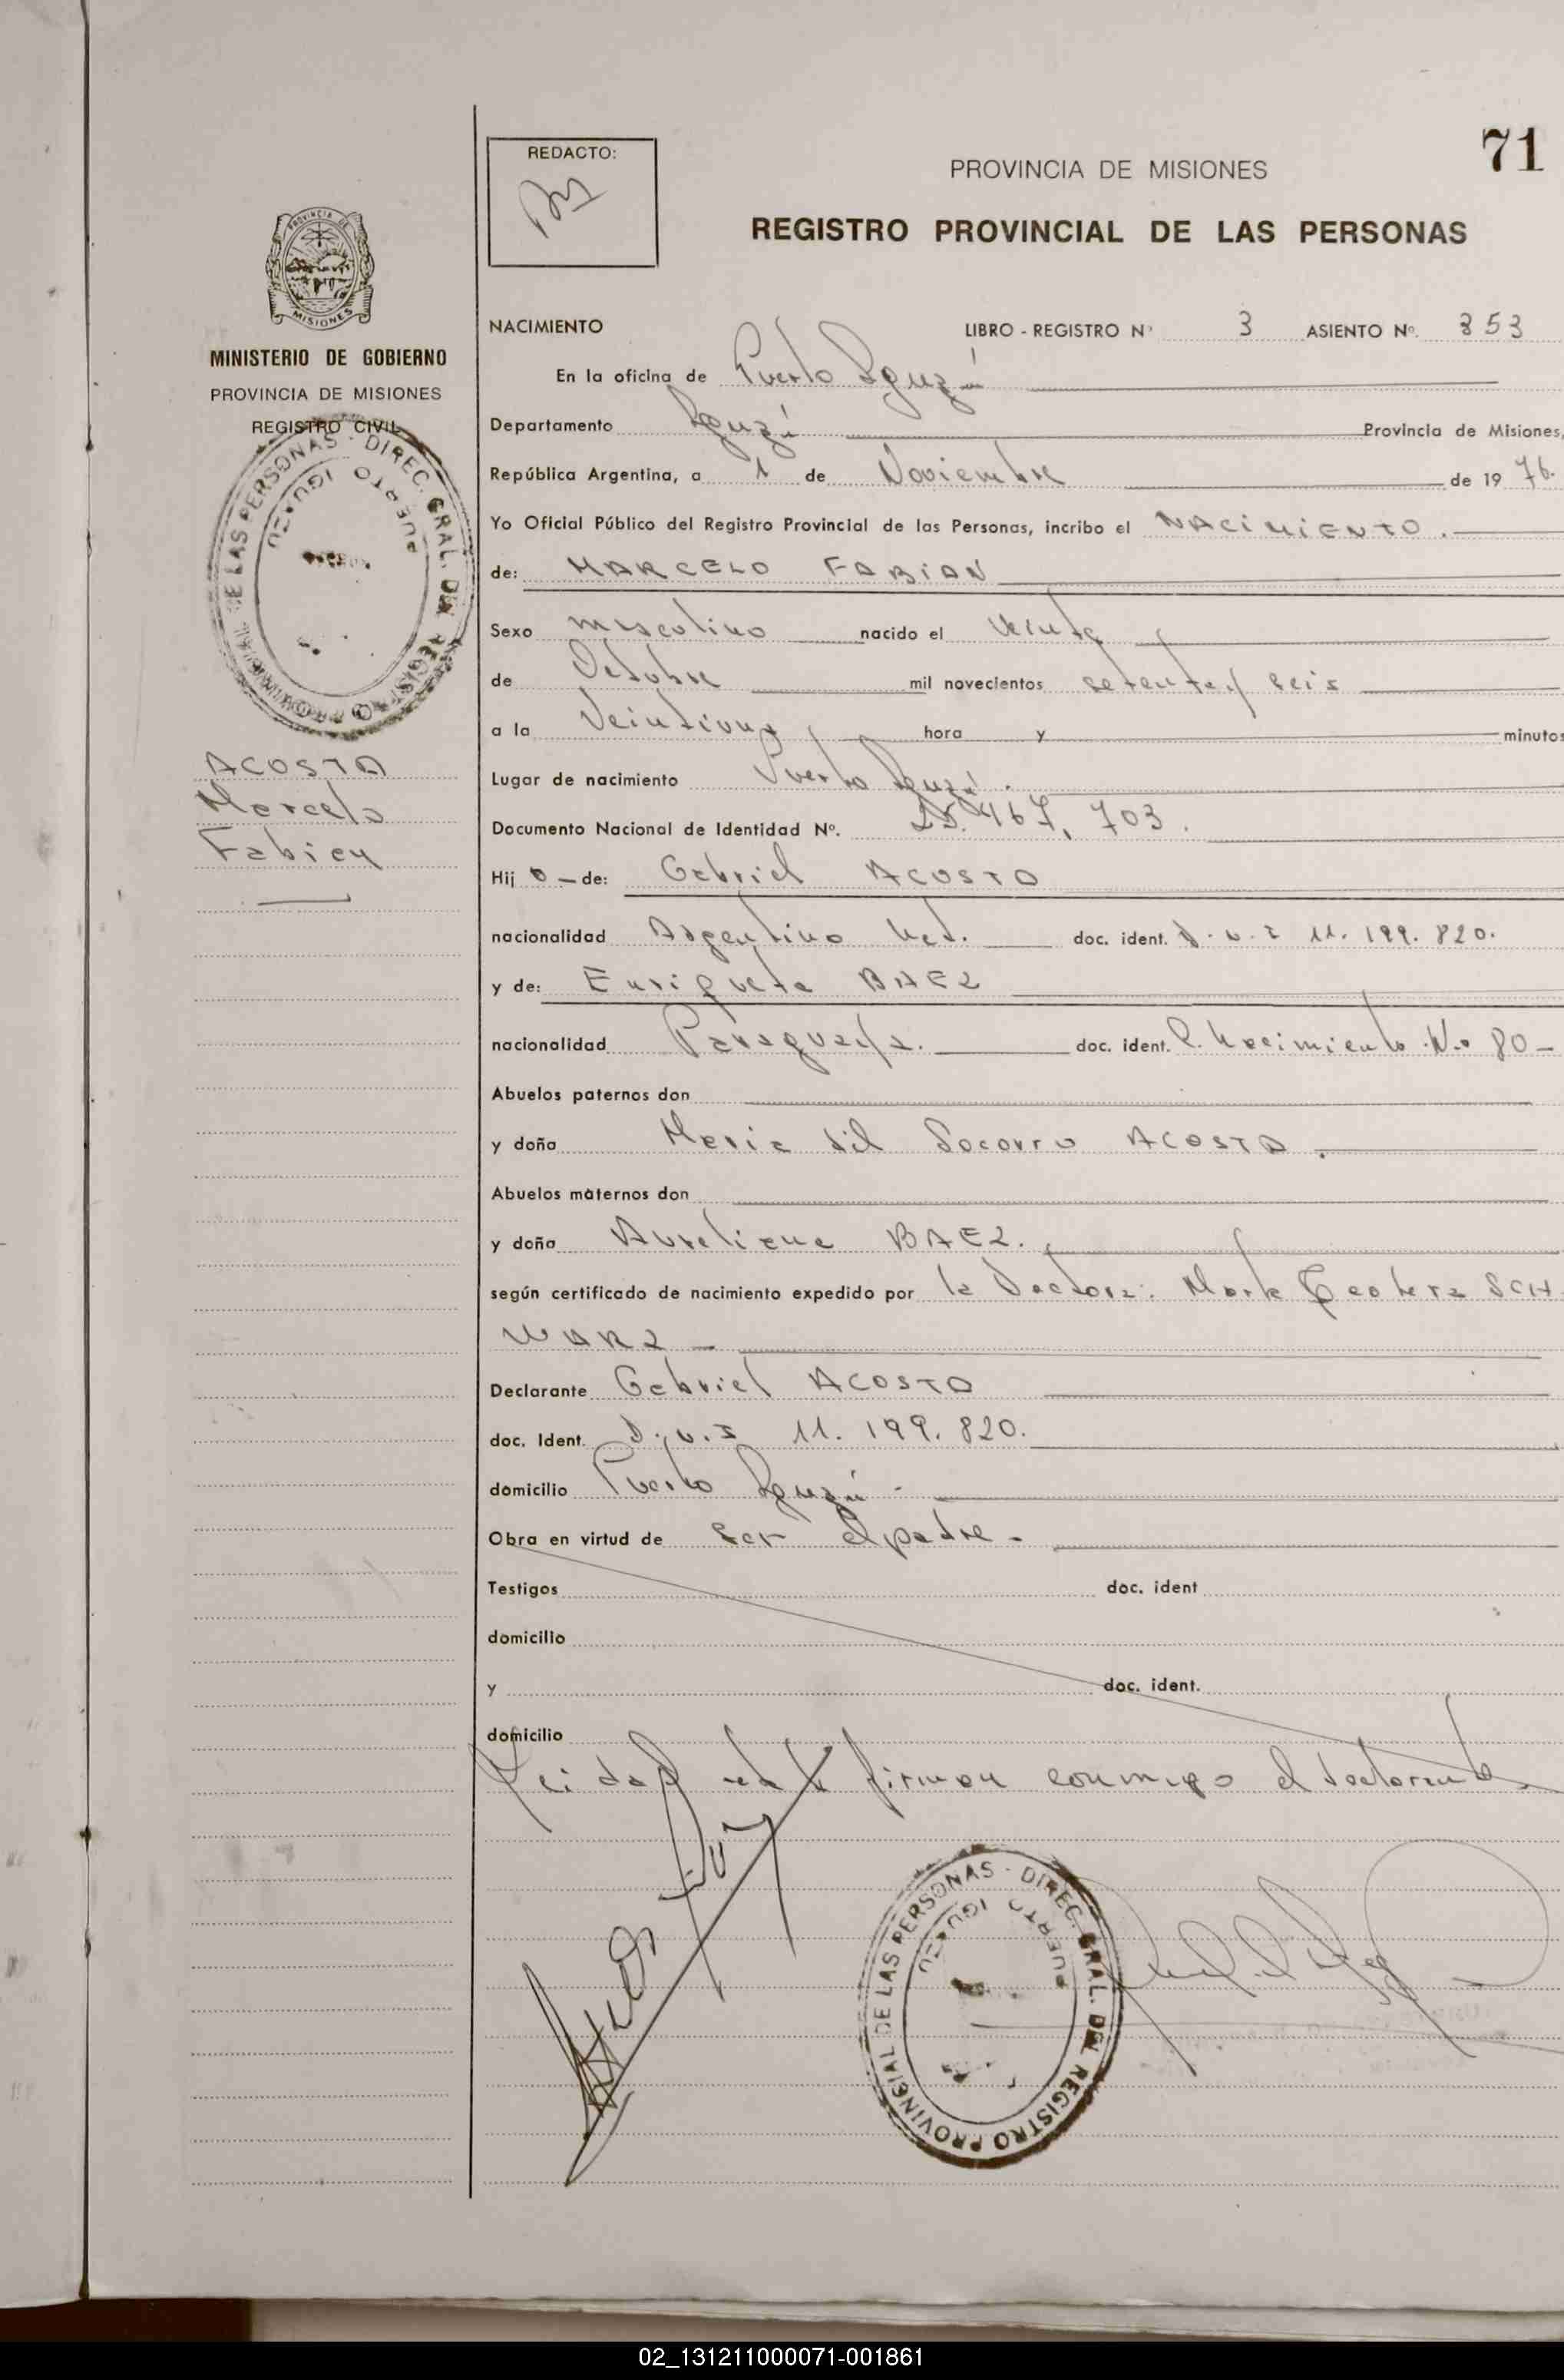 71
REDACTO:
PROVINCIA DE MISIONES
REGISTRO PROVINCIAL DE LAS PERSONAS
PROVINCIA DE MISIONES
MINISTERIO DE GOBIERNO
PROVINCIA DE MISIONES
REGISTRO CIVIL
DIREC. GRAL. DEL REGISTRO PROVINCIAL DE LAS PERSONAS
PUERTO IGUAZU
ACOSTA
Marcelo
Fabian
NACIMIENTO LIBRO - REGISTRO Nº 3 ASIENTO Nº. 353
En la oficina de Puerto Iguazú
Departamento Iguazú Provincia de Misiones,
República Argentina, a 1 de Noviembre de 1976.
Yo Oficial Público del Registro Provincial de las Personas, incribo el NACIMIENTO.
de: MARCELO FABIAN
Sexo masculino nacido el veinte
de Octubre mil novecientos setenta y seis
a la Veintiuna hora y minutos
Lugar de nacimiento Puerto Iguazú.
Documento Nacional de Identidad Nº. 25.467.703.
Hij o - de: Gabriel ACOSTA
nacionalidad Argentino Nat. doc. ident. D.N.I 11.199.820.
y de: Enriqueta BAEZ
nacionalidad Paraguaya. doc. ident. P. Nacimiento N.º 80 -
Abuelos paternos don
y doña Maria del Socorro ACOSTA.
Abuelos maternos don
y doña Aureliana BAEZ.
según certificado de nacimiento expedido por la Doctora: Marta SCH
WARZ -
Declarante Gabriel ACOSTA
doc. Ident. D.N.I 11.199.820.
domicilio Puerto Iguazú -
Obra en virtud de ser el padre -
Testigos doc. ident
domicilio
y doc. ident.
domicilio
Leida el acta firman conmigo el declarante.
DIREC. GRAL. DEL REGISTRO PROVINCIAL DE LAS PERSONAS
PUERTO IGUAZU
02_131211000071-001861